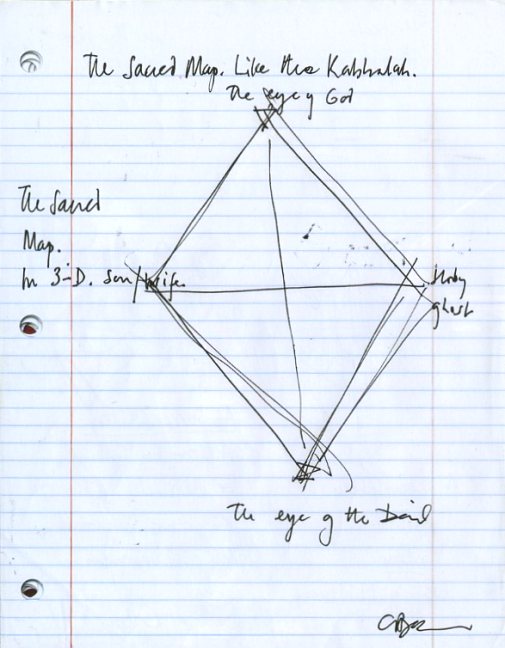 The Sacred Map. Like the Kabbalah.
The eye of God
The Sacred
Map.
In 3-D. Son/Wife.
Holy
ghost
The eye of the Devil